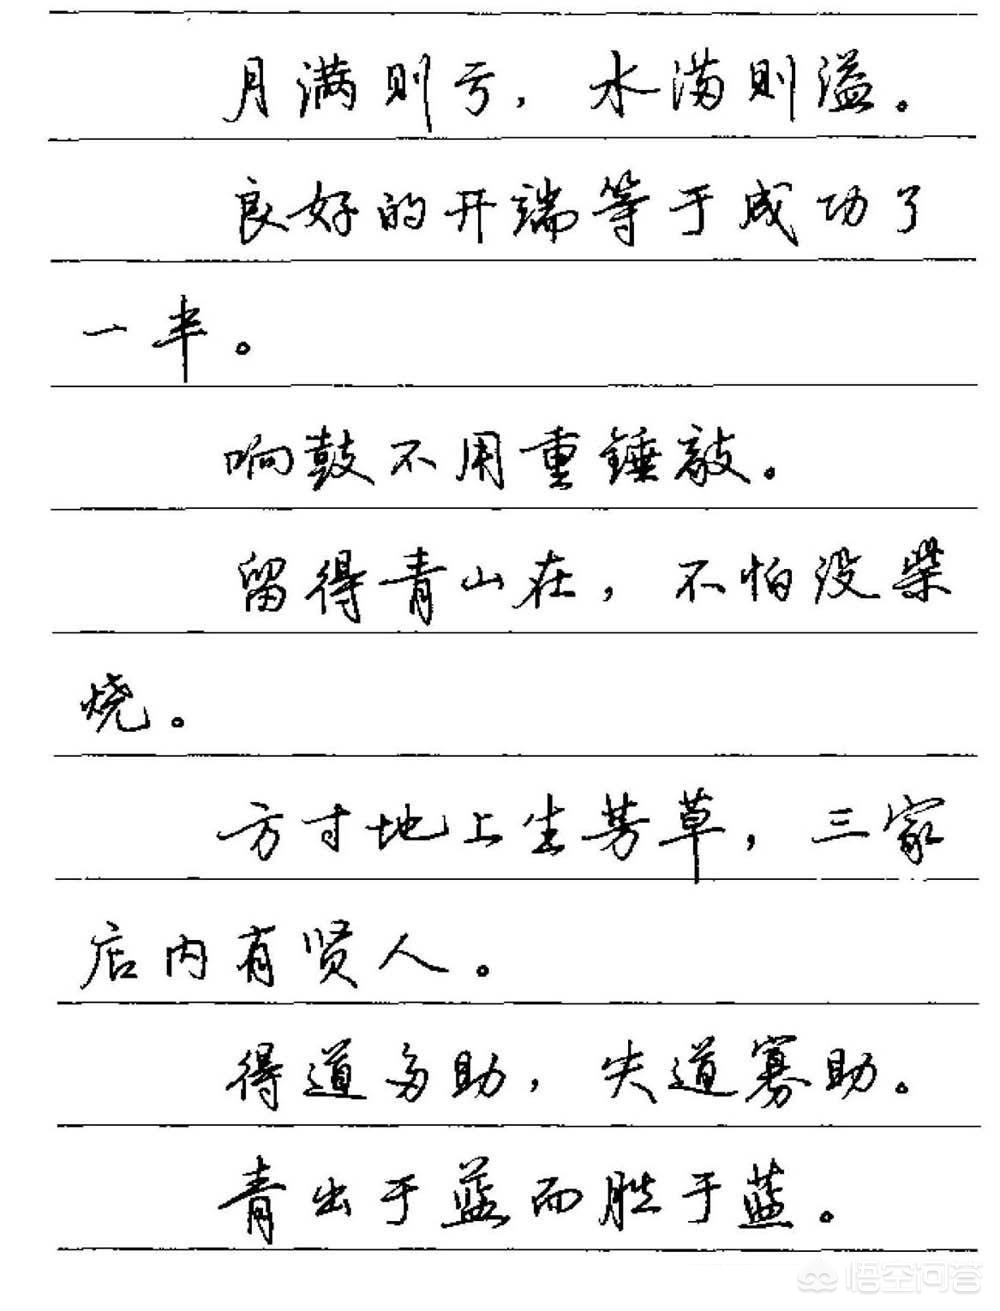 月满则亏，水满则溢。
良好的开端等于成功了
一半。
响鼓不用重锤敲。
留得青山在，不怕没柴
烧。
方寸地上生芳草，三家
店内有贤人。
得道多助，失道寡助。
青出于蓝而胜于蓝。
悟空问答